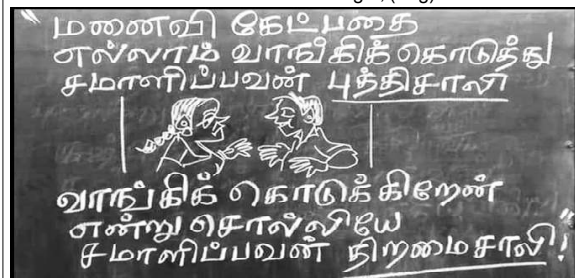 "மனைவி கேட்பதை
எல்லாம் வாங்கிக் கொடுத்து
சமாளிப்பவன் புத்திசாலி
வாங்கிக் கொடுக்கிறேன்
என்று சொல்லியே
சமாளிப்பவன் திறமைசாலி!"